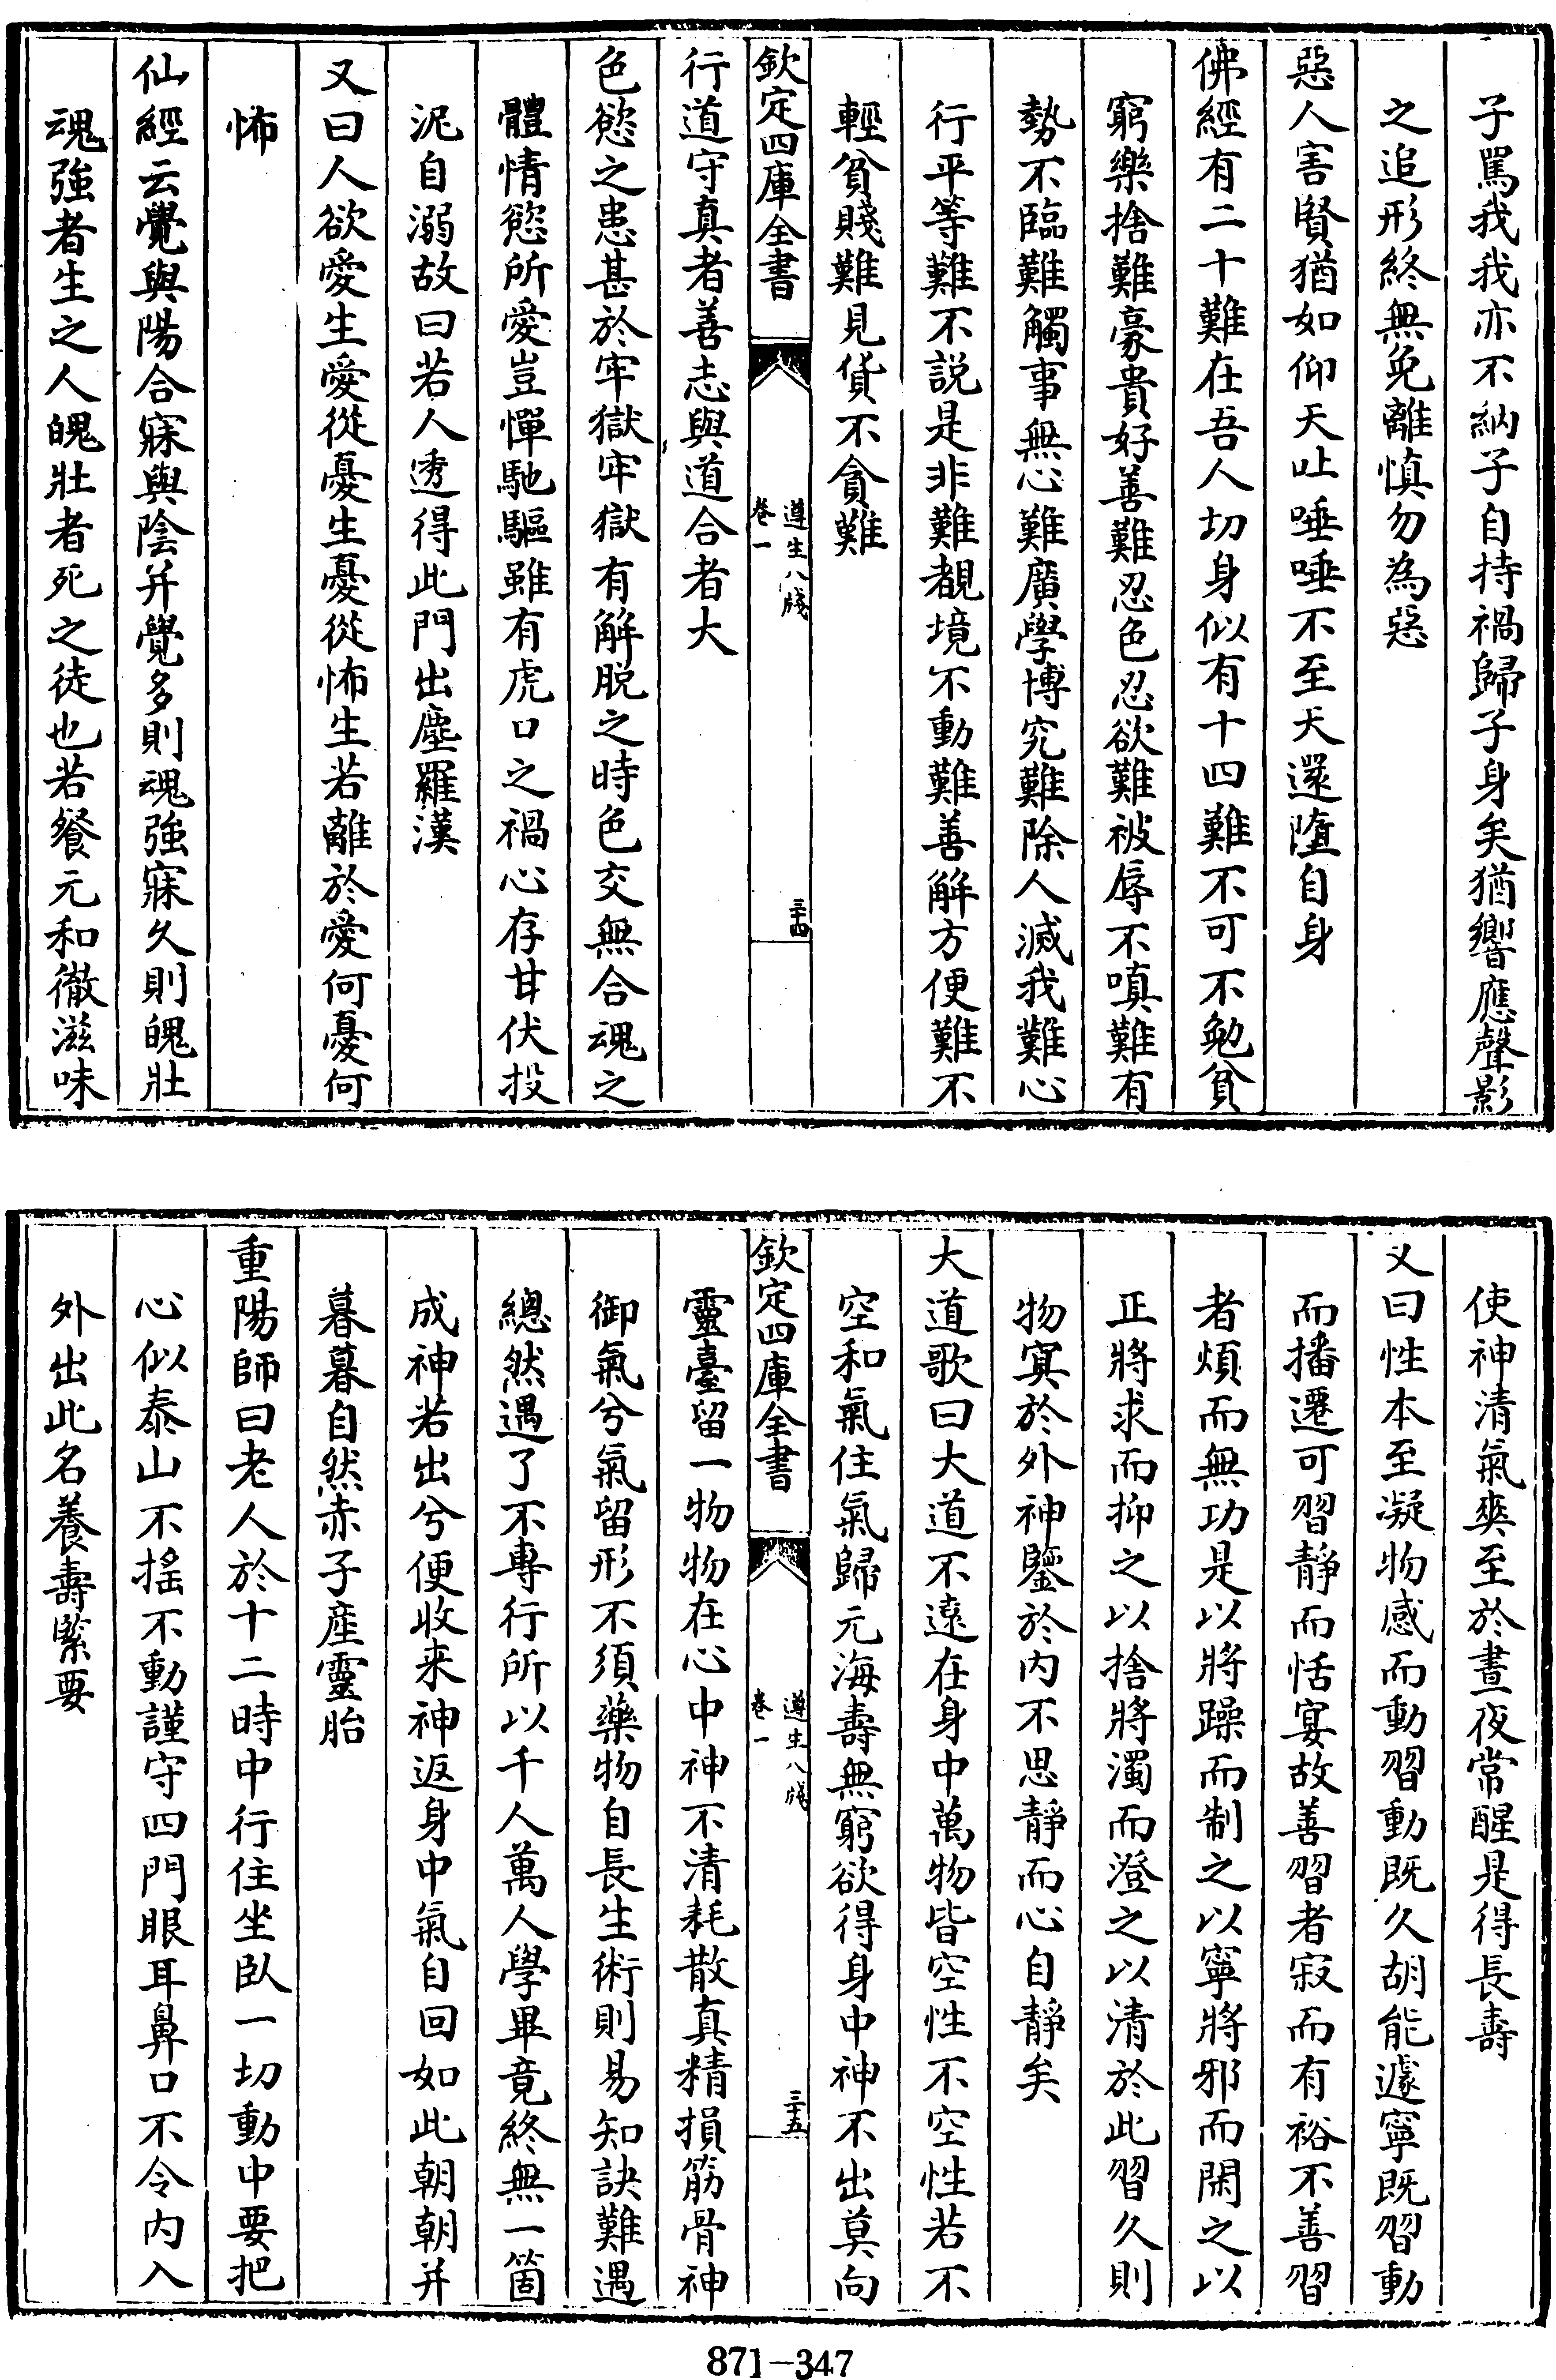 子罵我我亦不納子自持禍歸子身矣猶響應聲影
之追形終無免離慎勿為惡
惡人害賢猶如仰天吐唾唾不至天還墮自身
佛經有二十難在吾人切身似有十四難不可不勉貧
窮樂捨難豪貴好善難忍色忍欲難被辱不嗔難有
勢不臨難觸事無心難廣學博究難除人滅我難心
行平等難不説是非難覩境不動難善解方便難不
輕貧賤難見貨不貪難
欽定四庫全書
遵生八牋
卷一
三十四
行道守真者善志與道合者大
色慾之患甚於牢獄牢獄有解脱之時色交無合魂之
體情慾所愛豈憚馳驅雖有虎口之禍心存甘伏投
泥自溺故曰若人透得此門出塵羅漢
又曰人欲愛生愛從憂生憂從怖生若離於愛何憂何
怖
仙經云覺與陽合寐與陰并覺多則魂強寐久則魄壯
魂強者生之人魄壯者死之徒也若餐元和徹滋味
使神清氣爽至於晝夜常醒是得長壽
又曰性本至凝物感而動習動既久胡能遽寧既習動
而播遷可習靜而恬宴故善習者寂而有裕不善習
者煩而無功是以將躁而制之以寧將邪而閑之以
正將求而抑之以捨將濁而澄之以清於此習久則
物寞於外神鑒於内不思靜而心自靜矣
大道歌曰大道不遠在身中萬物皆空性不空性若不
空和氣住氣歸元海壽無窮欲得身中神不出莫向
欽定四庫全書
遵生八牋
卷一
三十五
靈臺留一物物在心中神不清耗散真精損筋骨神
御氣兮氣留形不須藥物自長生術則易知訣難遇
總然遇了不專行所以千人萬人學畢竟終無一箇
成神若出兮便收来神返身中氣自回如此朝朝并
暮暮自然赤子産靈胎
重陽師曰老人於十二時中行住坐臥一切動中要把
心似泰山不搖不動謹守四門眼耳鼻口不令内入
外出此名養壽緊要
871—347